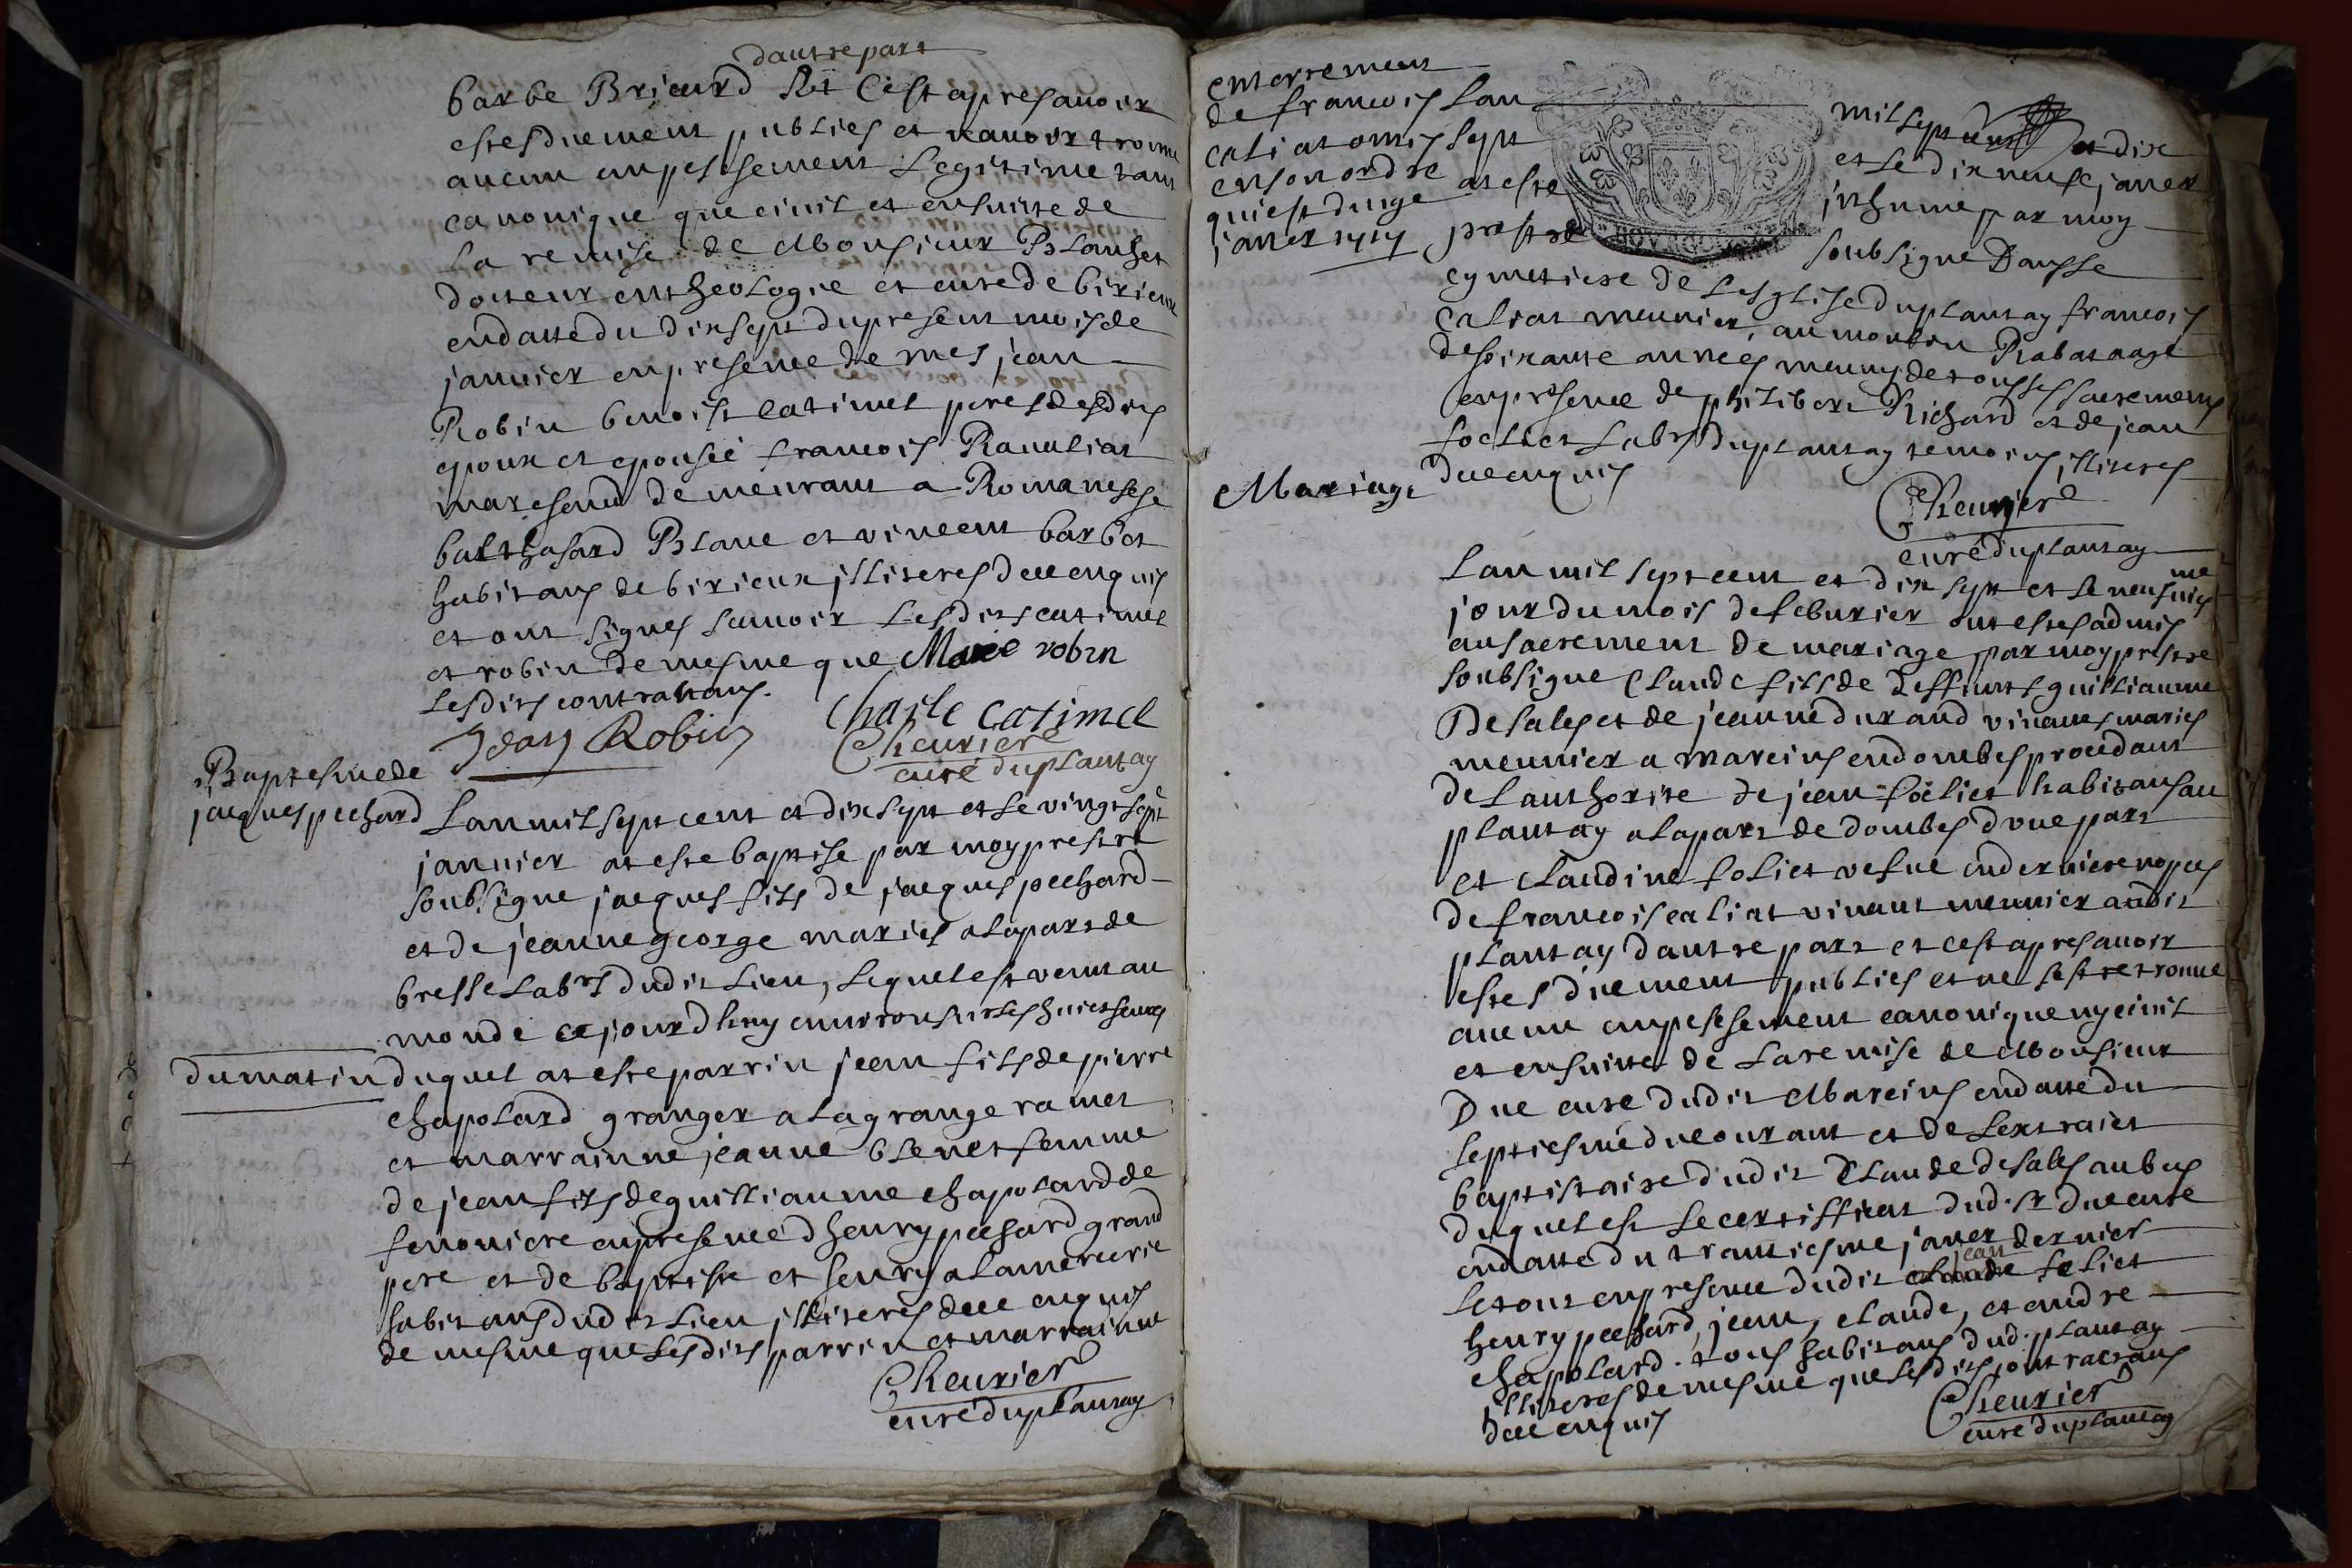 d'autre part
barbe Brieurd Et C'est apres avoir
estes duement publies et n'avoir trouvé
aucun empeschement Legitime tant
canonique que civil et ensuitte de
la remise de Monsieur Blanhet
docteur en theologie et curé de birieux
en datte du dixsept du present mois de
janvier en presence de mes jean
Robin benoist catimel peres desdits
epoux et epousé francois Ravuliat
mareschal demeurant a Romanesche
balthasard Blanc et vincent barbet
habitans de birieux illiteres de ce enquis
et ont signes scavoir Lesdits catimel
et robin de mesme que Marie robin
Lesdits contrattans.
Jean Robin Charle catimel
Cheurier
curé du plantay
Baptesme de
jacques pechard
Lan mil sept cent et dix sept et le vingt sept
janvier at esté baptisé par moy prestre
soubsigné jacques fils de jacques pechard
et de jeanne george mariés a la part de
bresse labrs dudit lieu, lequel est venu au
monde ce jourdhuy environ sur les huict heures
du matin duquel at esté parrin jean fils de pierre
chapolard granger a la grange ramet
et marrainne jeanne blenet femme
de jean fils de guilliaume chapolard de
fenouiere en presence d'henry pechard grand
pere et de baptiste et henry alamercerie
habitans dudit lieu illiteres de ce enquis
de mesme que lesdits parrin et marrainne
Cheurier
curé du plantay
enterrement
de francois
caliat omis
en son ordre
qui est du 19e
janer 1717
Lan mil sept cent et dix
sept et le dix neuf janer
at esté inhumé par moy
prestre soubsigné dans le
cymetiere de lesglise du plantay francois
caliat meunier, au moulin Rabat aagé
de soixante années muny de tous ses sacremens
en presence de philibert Richard et de jean
foeliet labrs du plantay temoins illiteres
de ce enquis
Cheurier
curé du plantay
Mariage
Lan mil sept cent et dix sept et le neufviesme
jour du mois de feburier ont estes admis
au sacrement de mariage par moy prestre
soubsigné Claude fils de deffunts guilliaume
Desales et de jeanne durand vivants mariés
meunier a mareins en dombes procedant
de lauthorite de jean foeliet habitans au
plantay a la part de dombes d'une part
et claudine foliet vefue en derniere nopces
de francois caliat vivant meunier audit
plantay d'autre part et cest apres avoir
estes duement publies et ne s'estre trouvé
aucun empeschement canonique ny civil
et ensuitte de la remise de Monsieur
Duc curé dudit Mareins en datte du
septiesme du courant et de l'extraict
baptistaire dudit Claude desales au bas
duquel est le certifficat dud. sr duc curé
en datte du trantiesme janer dernier
le tout en presence dudit jean feliet
henry pechard, jean, claude, et andre
chapolard. tous habitans dud. plantay
illiteres de mesme que lesdits contractans
de ce enquis
Cheurier
curé du plantay